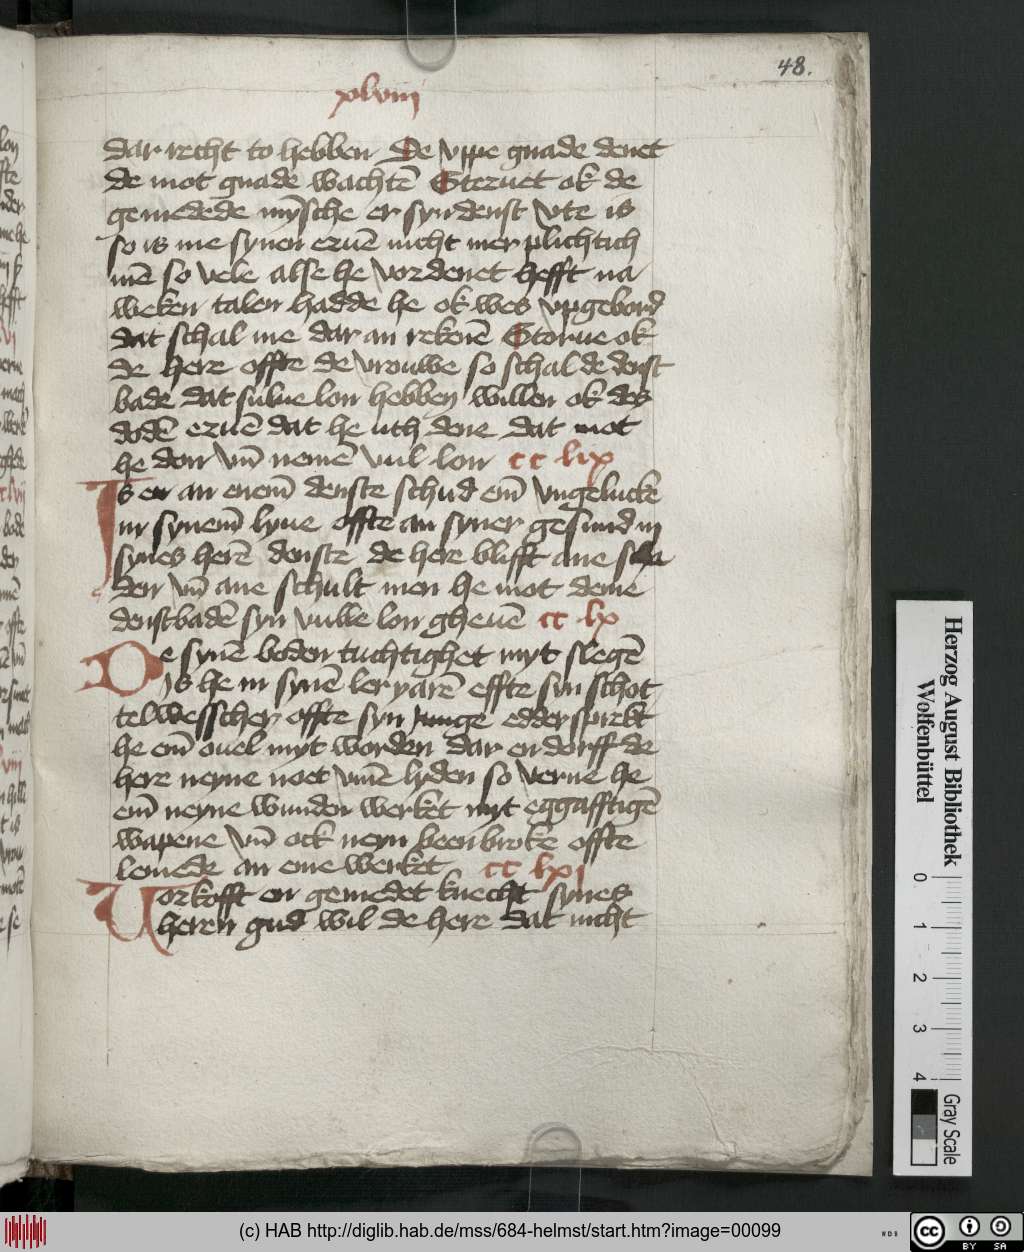 48.
xlviij
dar recht to hebben De vppe gnade denet
de mot gnade wachtē Steruet ok de
gemedede mȳsche er syn denst vte is
so is me synen eruē nicht mer plichtich
mē so vele alse he vordenet hefft na
weken talen hadde he ok wes vpgebord
dat schal me dar an rekenē Storue ok
de here offte de vrouwe so schal de denst
bade dat sulue lon hebben willen ok des
dodē eruē dat he uth dene dat mot
he don vn̄ nemē vul lon cc lix
Is er an enem̄ denste schud em̄ vngelucke
in synem̄ lyue offte an syner gesund in
synes herē denste de here blifft ane scha
den vn̄ ane schult men he mot deme
denstbadē syn vulle lon gheuē cc lx
De synē boden tuchtighet myt slegē
is he in synē ler yarē effte syn schot
telwesscher offte syn junge edder sprekt
he em̄ ouel myt worden dar en dorff de
here neyne noet vm̄e lyden so verne he
em̄ neyne wunden werket myt eggafftigē
wapene vn̄ ock neyn been broke offte
lemede an eme werket cc lxi
Vorkofft en gemedet knecht synes
heren gud wil de here dat nicht
Herzog August Bibliothek
Wolfenbüttel
0 1 2 3 4
Gray Scale
(c) HAB http://diglib.hab.de/mss/684-helmst/start.htm?image=00099
WDB
cc BY SA